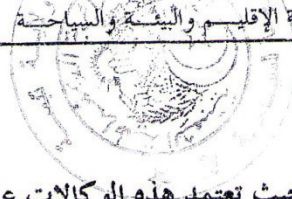 ة الإقليم والبيئة والسياحة
حيث تعتمد هذه الوكالات ع